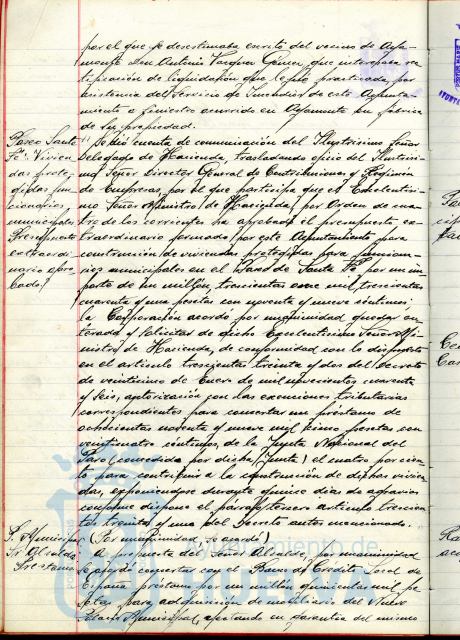 por el que se desestimaba escrito del vecino de Aya-
monte Don Antonio Vazquez que interesaba rec-
tificación de liquidación que le fué practicada por
asistencia del Servicio de Incendios de este Ayunta-
miento a siniestro ocurrido en Ayamonte en fábrica
de su propiedad.
Paseo Santa
Fé. Vivien
das prote-
gidas fun-
cionarios
municipales
Presupuesto
extraordi-
nario apro-
bado.
Se dió cuenta de comunicación del Ilustrísimo Señor
Delegado de Hacienda, trasladando oficio del Ilustrísi-
mo Señor Director General de Contribuciones y Régimen
de Empresas, por el que participa que el Excelentísi-
mo Señor Ministro de Hacienda, por Orden de cua-
tro de los corrientes ha aprobado el presupuesto ex-
traordinario formado por este Ayuntamiento para
construcción de viviendas protegidas para funciona-
rios municipales en el Paseo de Santa Fé, por un im-
porte de un millón, trescientas once mil trescientas
cuarenta y una pesetas con noventa y nueve céntimos;
la Corporación acordó por unanimidad quedar en-
terada y solicitar de dicho Excelentísimo Señor Mi-
nistro de Hacienda, de conformidad con lo dispuesto
en el artículo trescientos treinta y dos del Decreto
de veinticinco de Enero de mil novecientos cuarenta
y seis, autorización con las exenciones tributarias
correspondientes para concertar un préstamo de
ochocientas noventa y nueve mil cinco pesetas con
veinticuatro céntimos, de la Junta Nacional del
Paro (concedida por dicha Junta) el cuatro por cien-
to para contribuir a la construcción de dichas vivien-
das, exponiéndose durante quince días de agravios
conforme dispone el párrafo tercero artículo trescien-
tos treinta y uno del Decreto antes mencionado.
(Por unanimidad, se acordó)
P. Municipal
Sr. Alcalde
Préstamo
A propuesta del Señor Alcalde, por unanimidad
se acordó concertar con el Banco de Crédito Local de
España préstamo por un millón quinientas mil pe-
setas, para adquisición de mobiliario del Nuevo
Palacio Municipal, afectando en garantía del mismo
Ayuntamiento de
HUELVA